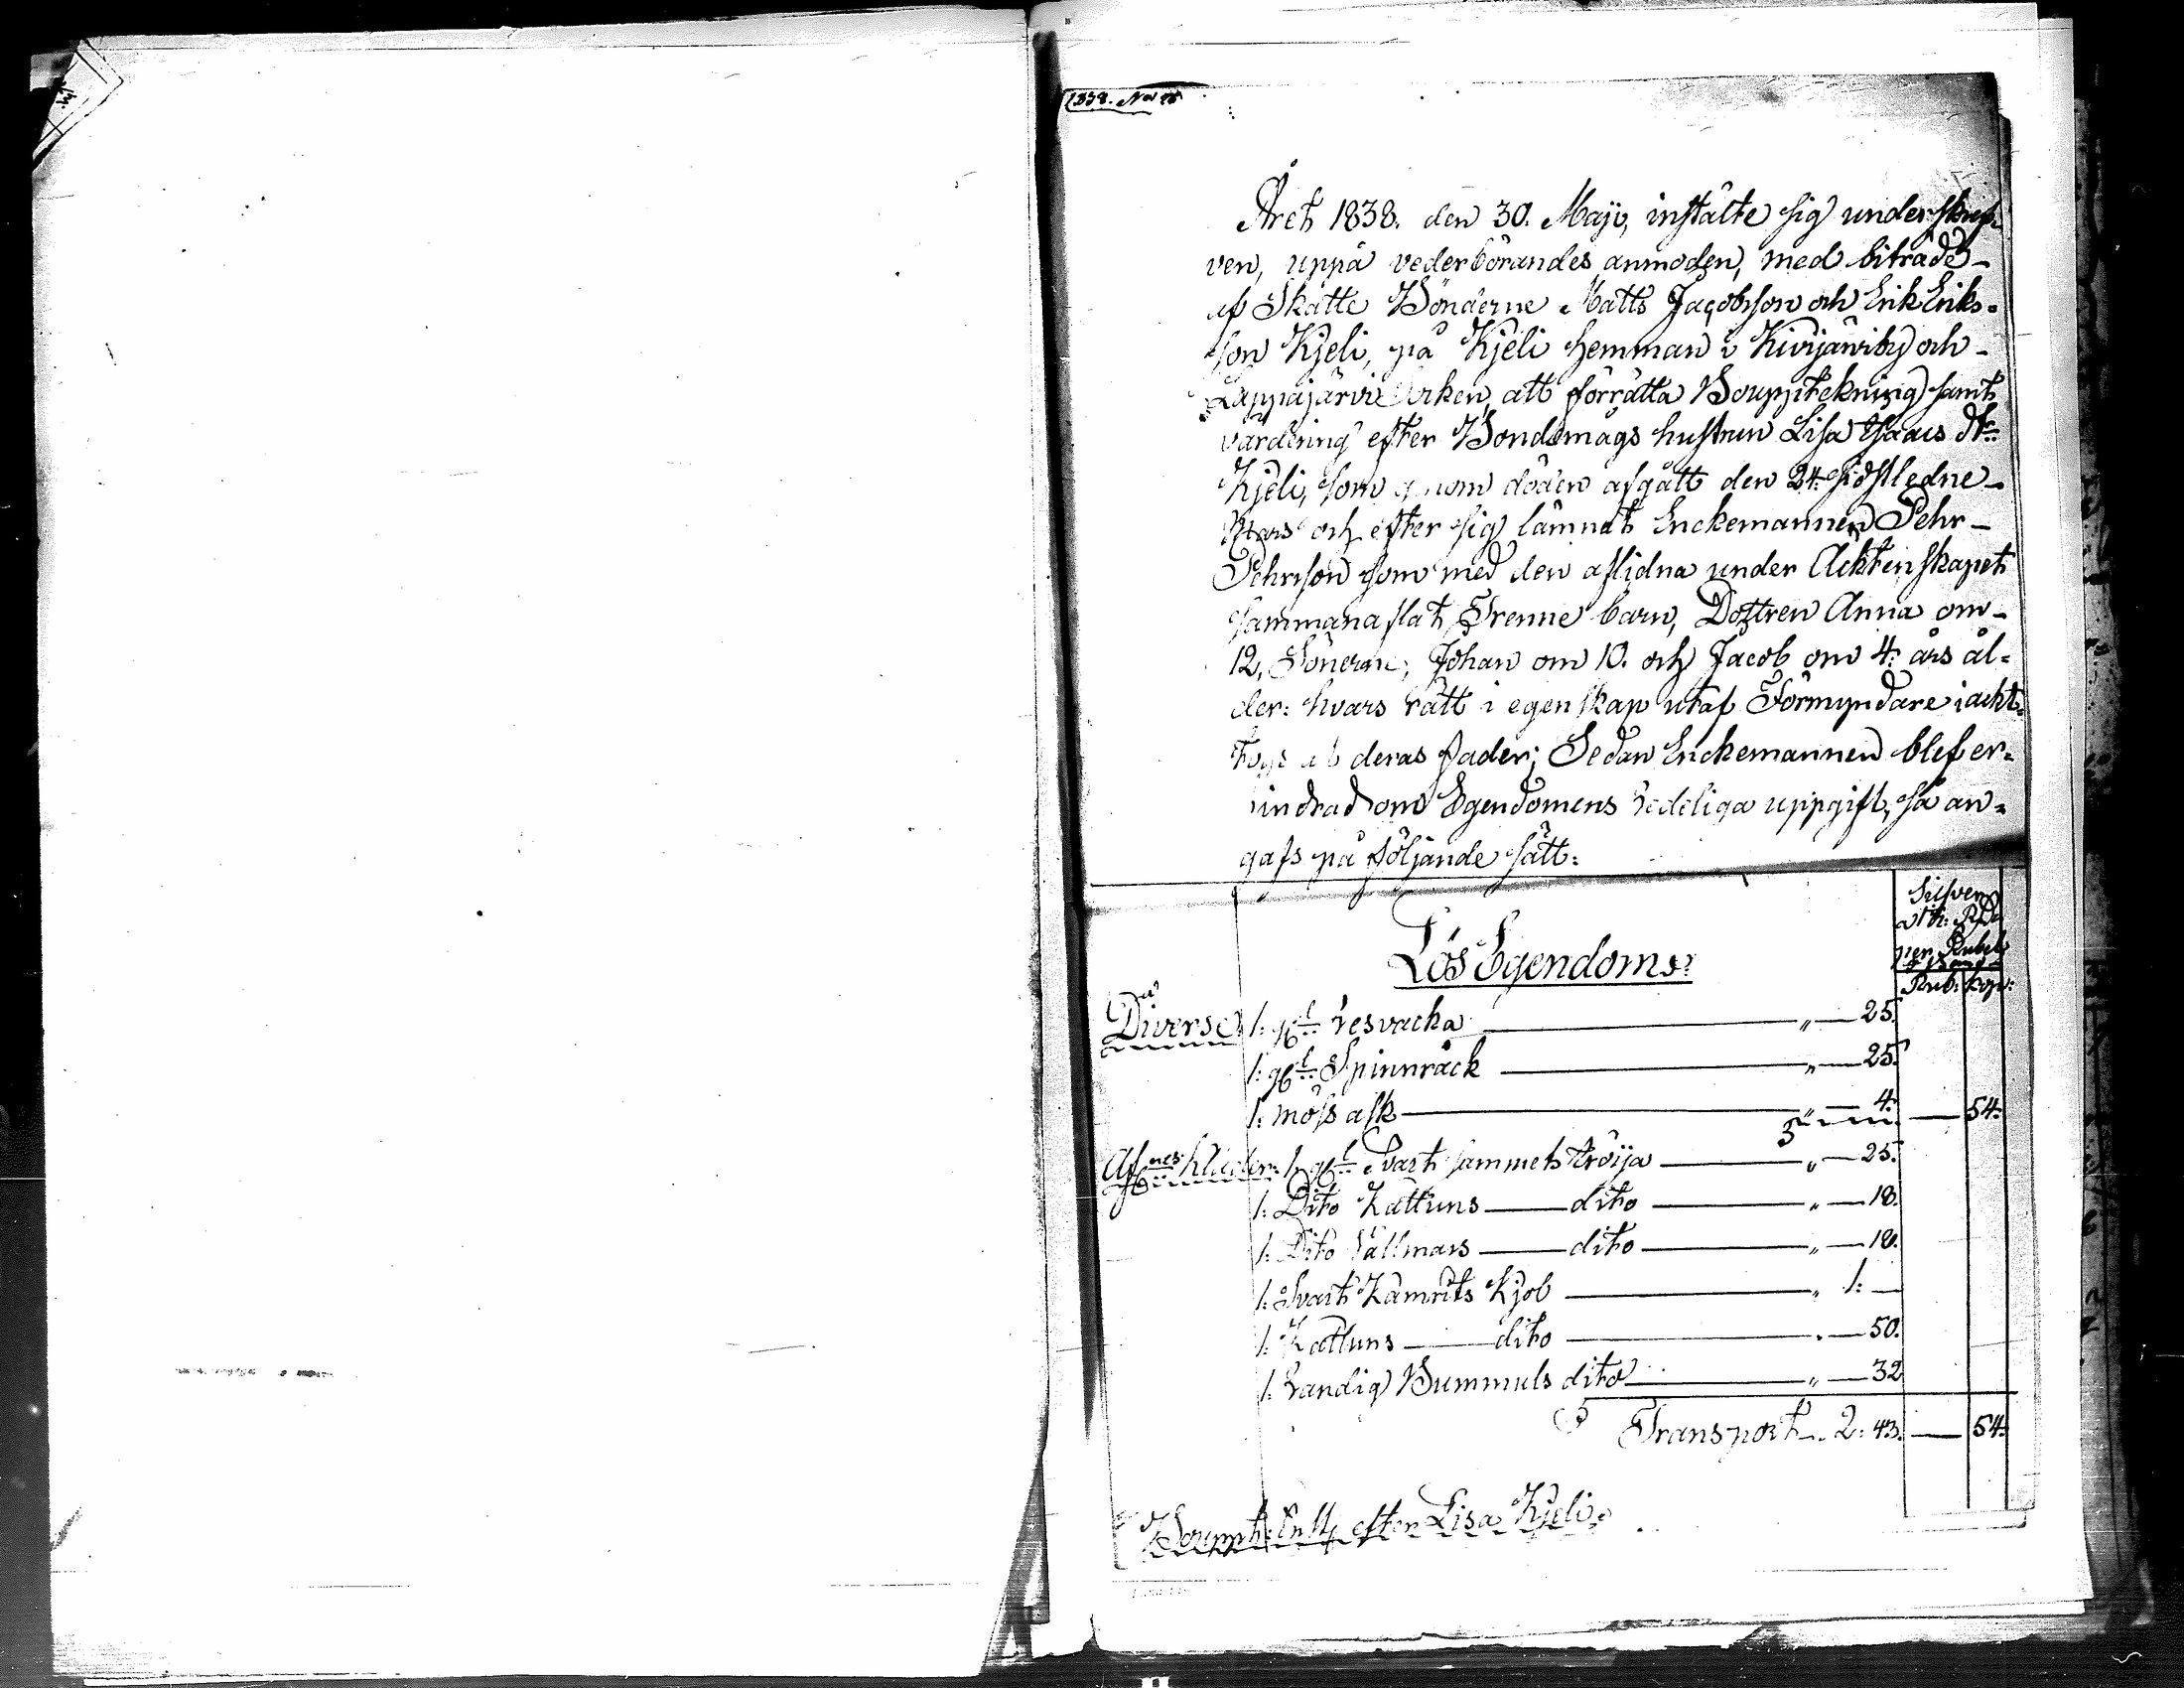 1838. No 48
Året 1838. den 30. Maji, instälte sig underskref-
ven, uppå vederbörandes anmoden, med biträde
af Skatte Bönderne Matts Jacobsson och Erik Eriks-
son Kjeli, på Kjeli Hemman i Kivijärvi by och
Lappajärvi Socken, att förrätta Bouppteckning samt
värdering efter Bondemågs hustrun Lisa Isaacs dr
Kjeli, som genom döden afgått den 24. sidstledne
Mars och efter sig lämnat Enckemannen Pehr
Pehrsson som med den aflidna under Äcktenskapet
sammanaflat Trenne barn, Dottren Anna om
12, Sönerne; Johan om 10. och Jacob om 4. års ål-
der: hvars rätt i egenskap utaf Förmyndare iackt-
togs af deras fader; Sedan Enckemannen blef er-
indrad om Egendomens redeliga uppgift, så an-
gafs på följande sätt:
Silfver
per Rubel
Rub: Kop:
Lös Egendom:
Diverse 1: gl resvacka " 25.
1: gl Spinnråck " 25.
1: möss ask " 4. 54.
Afnes kläder: 1: gl Svart sammets tröija " 25.
1: Dito Kattuns dito " 18.
1: Dito Vallmars dito " 18.
1: Svart Kamrits Kjol " 1:
1: Kattuns dito " 50.
1: Randig Bummuls dito " 32
Transport 2: 43. 54.
efter Lisa Kjeli